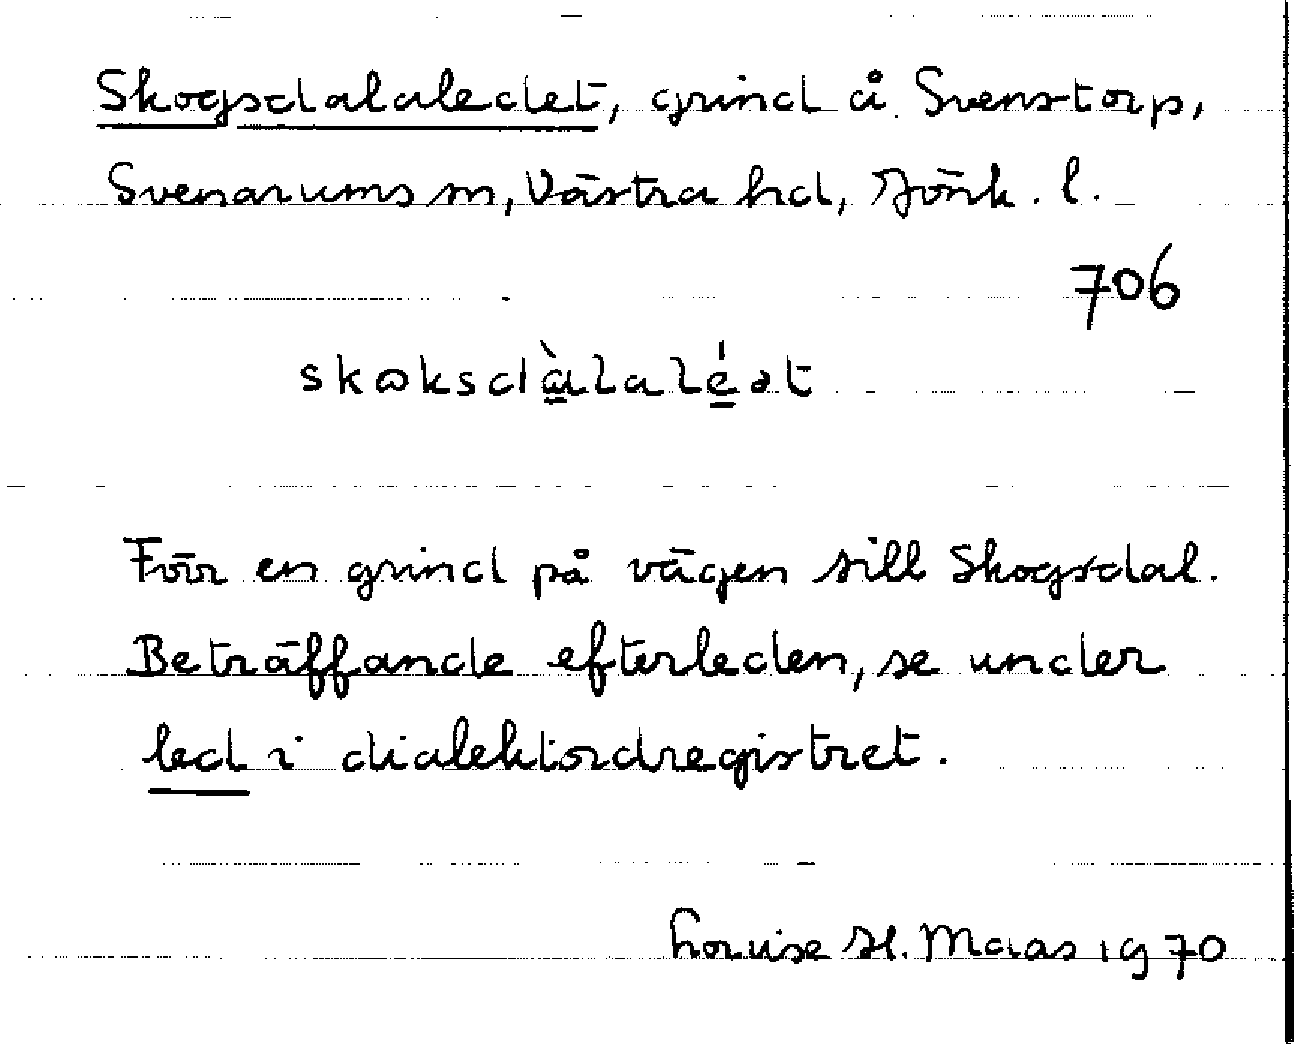 Skogsdalaledet, grind å Svenstorp,
Svenarums sn, Västra hd, Jönk. l.
706
skɷksdà̱lalé̱ət
Förr en grind på vägen till Skogsdal.
Beträffande efterleden, se under
led i dialektordregistret.
Louise H. Maas 1970